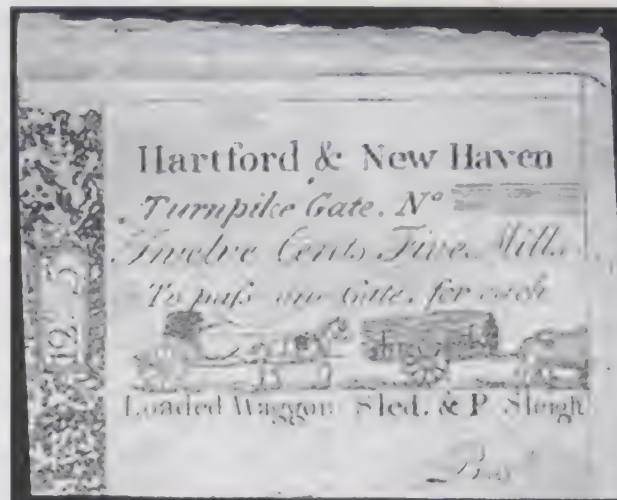 Hartford & New Haven
Turnpike Gate. No
Twelve Cents Five Mills
To paſs one Gate, for each
Loaded Waggon Sled. & P Sleigh
12 5